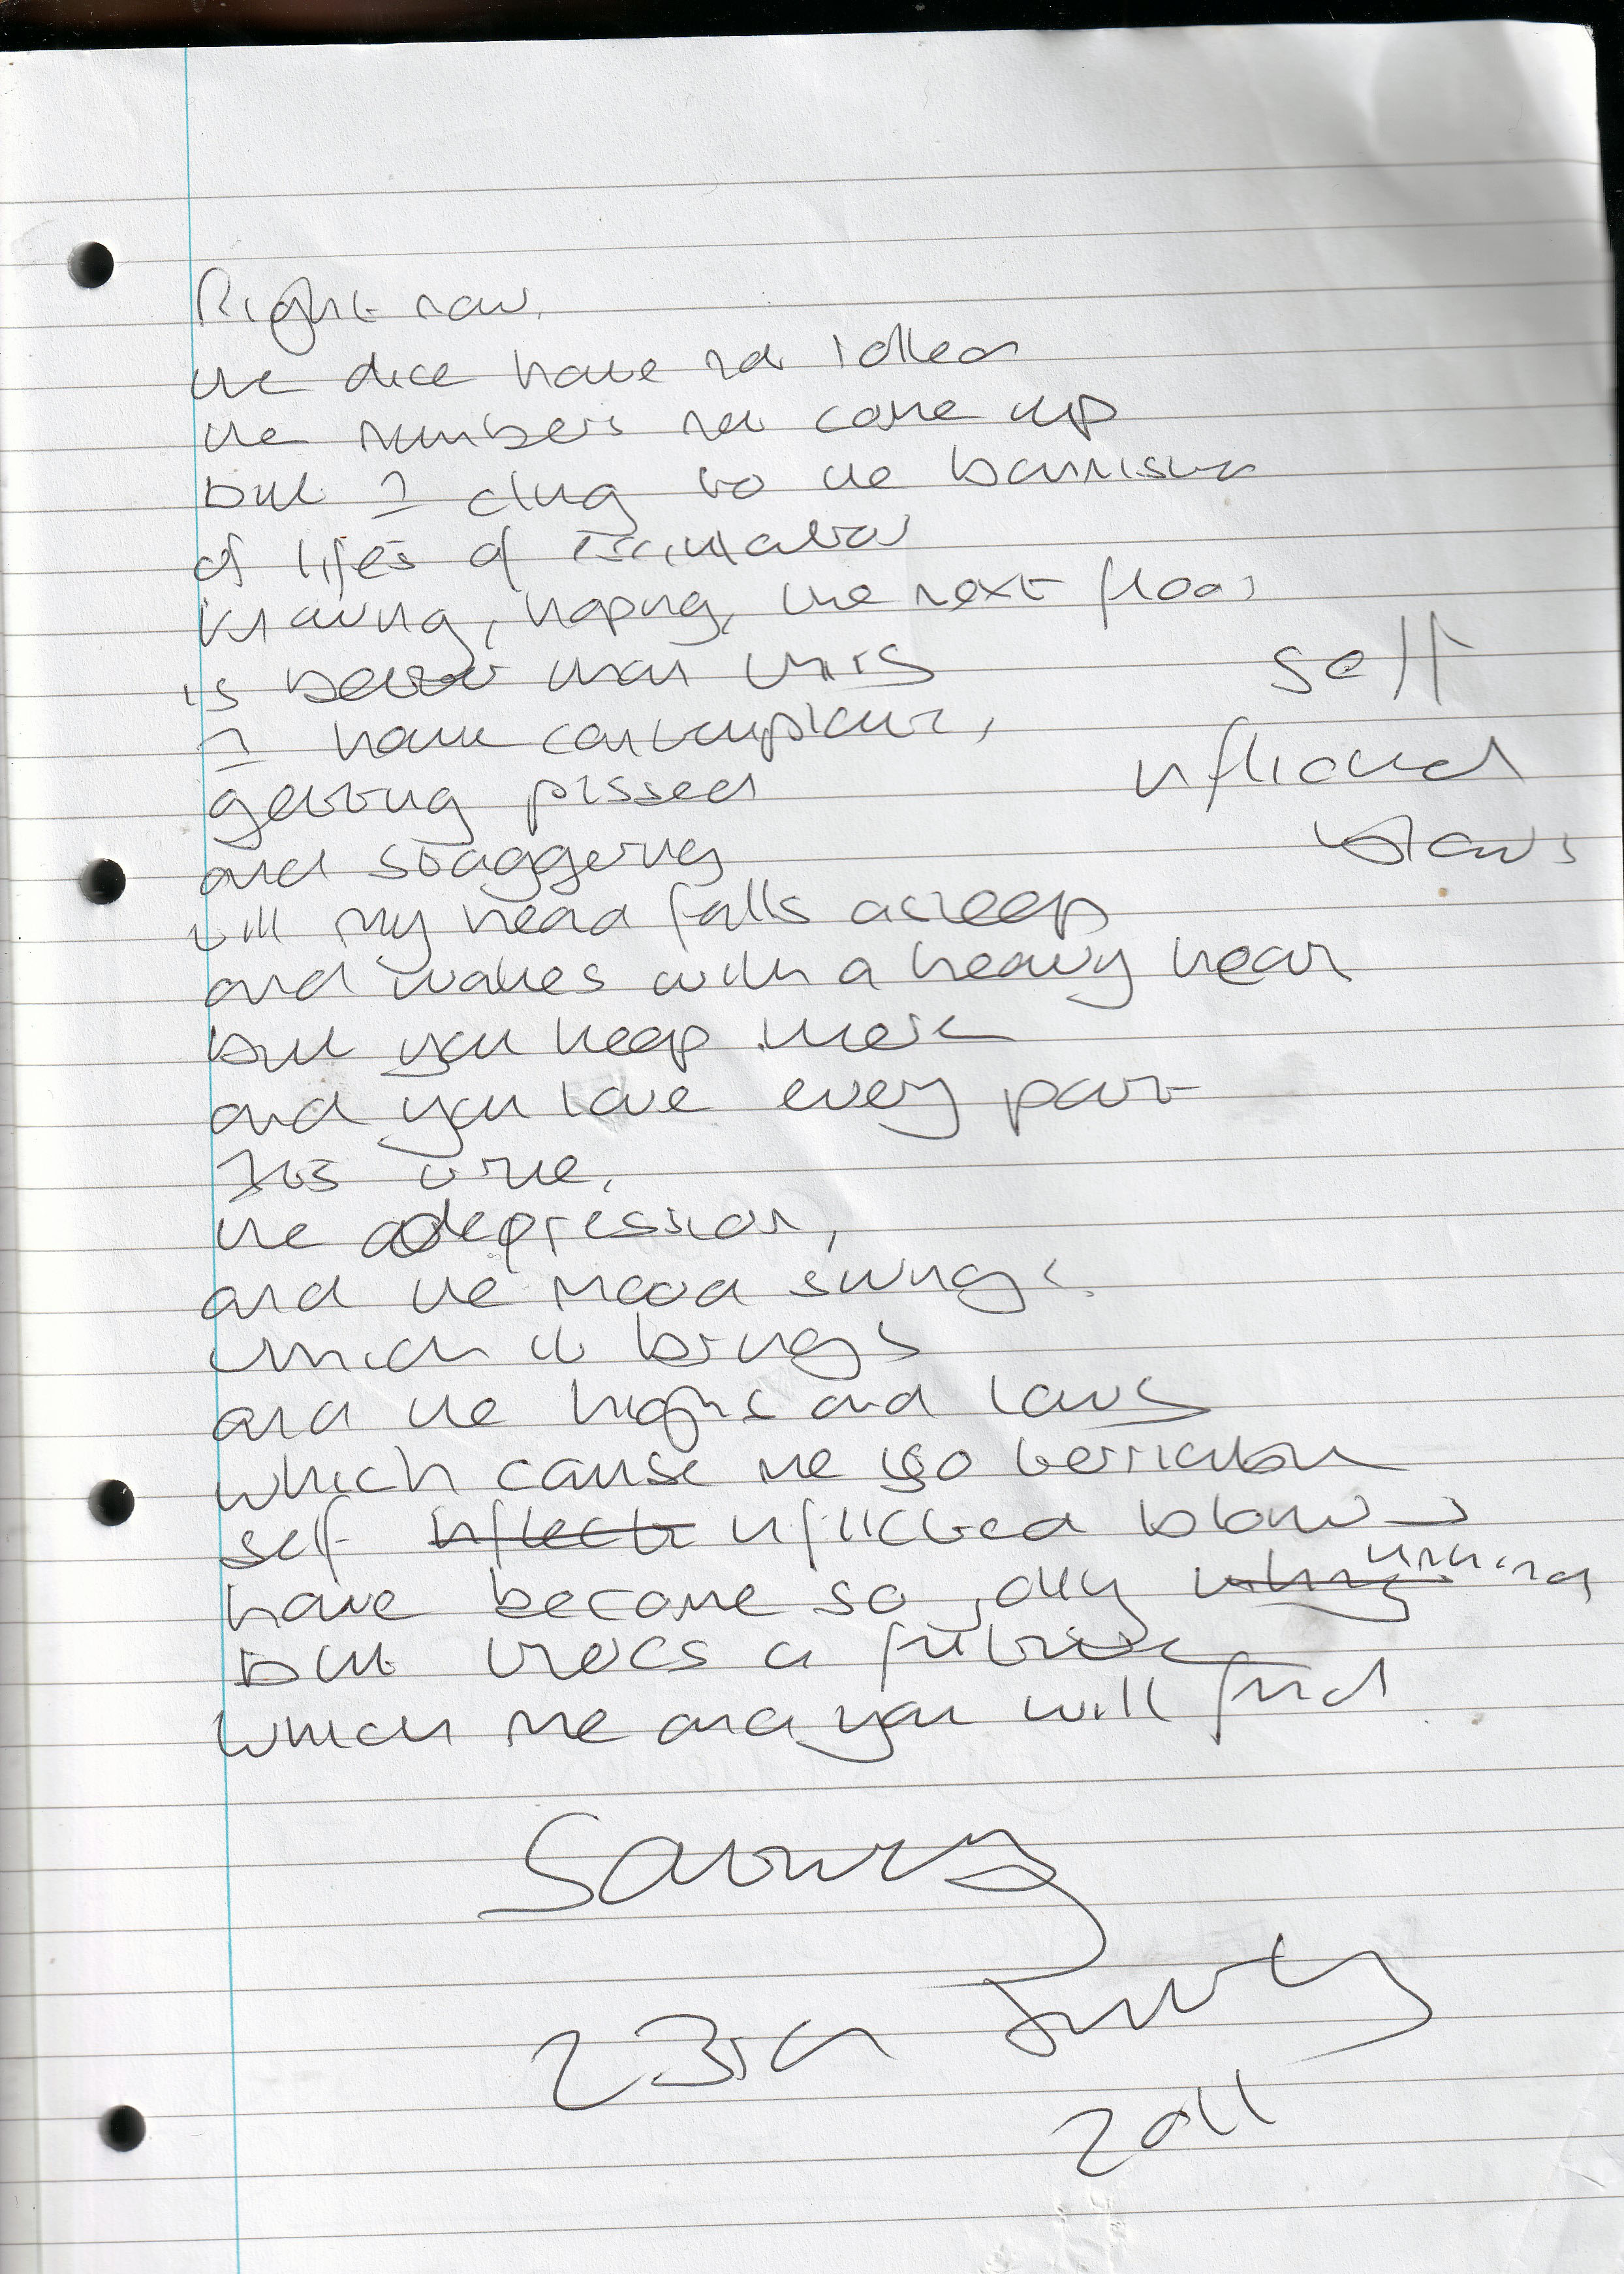 Right now,
the dice have not rolled
the numbers not come up
but I cling to the bannister
of lifes
knowing, hoping, the next floor
is better than this
I have contemplated,
getting pissed
and staggering
till my head falls asleep
and wakes with a heavy heart
but you keep
and you love every part
Its true,
the depression,
and the mood swings
which it brings
and the highs and lows
which cause me so
self inflicted blows
have become so, unkind
but theres a future
which me and you will find
self
inflicted
blows
Saturday
23rd July
2011